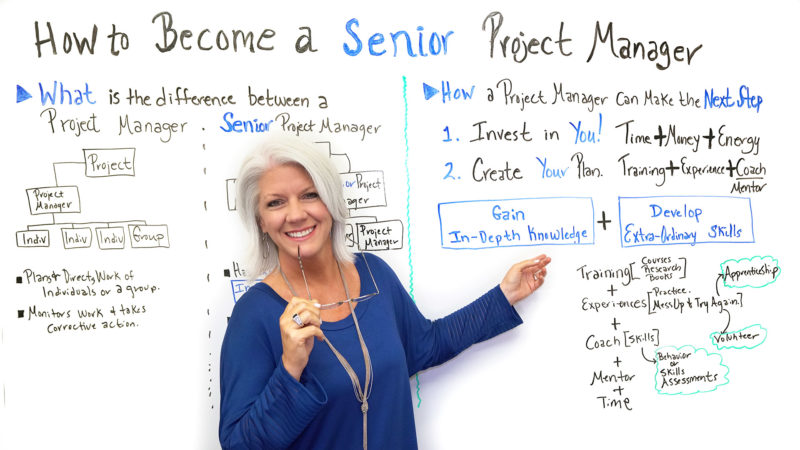 How to Become a Senior Project Manager
What is the difference between a
Project Manager . Senior Project Manager
Project
Project
Manager
Indiv Indiv Indiv Group
Plans & Directs Work of
Individuals or a group.
Monitors work & takes
corrective action.
Project
Project
Manager
How a Project Manager Can Make the Next Step
1. Invest in You! Time + Money + Energy
2. Create Your Plan. Training + Experience + Coach
Mentor
Gain
In-Depth Knowledge
+
Develop
Extra-Ordinary Skills
Training [Courses
Research
Books]
+
Experiences [Practice.
Mess Up & Try Again.]
+
Coach [Skills]
+
Mentor
+
Time
Apprenticeship
Volunteer
Behavior
or
Skills
Assessments